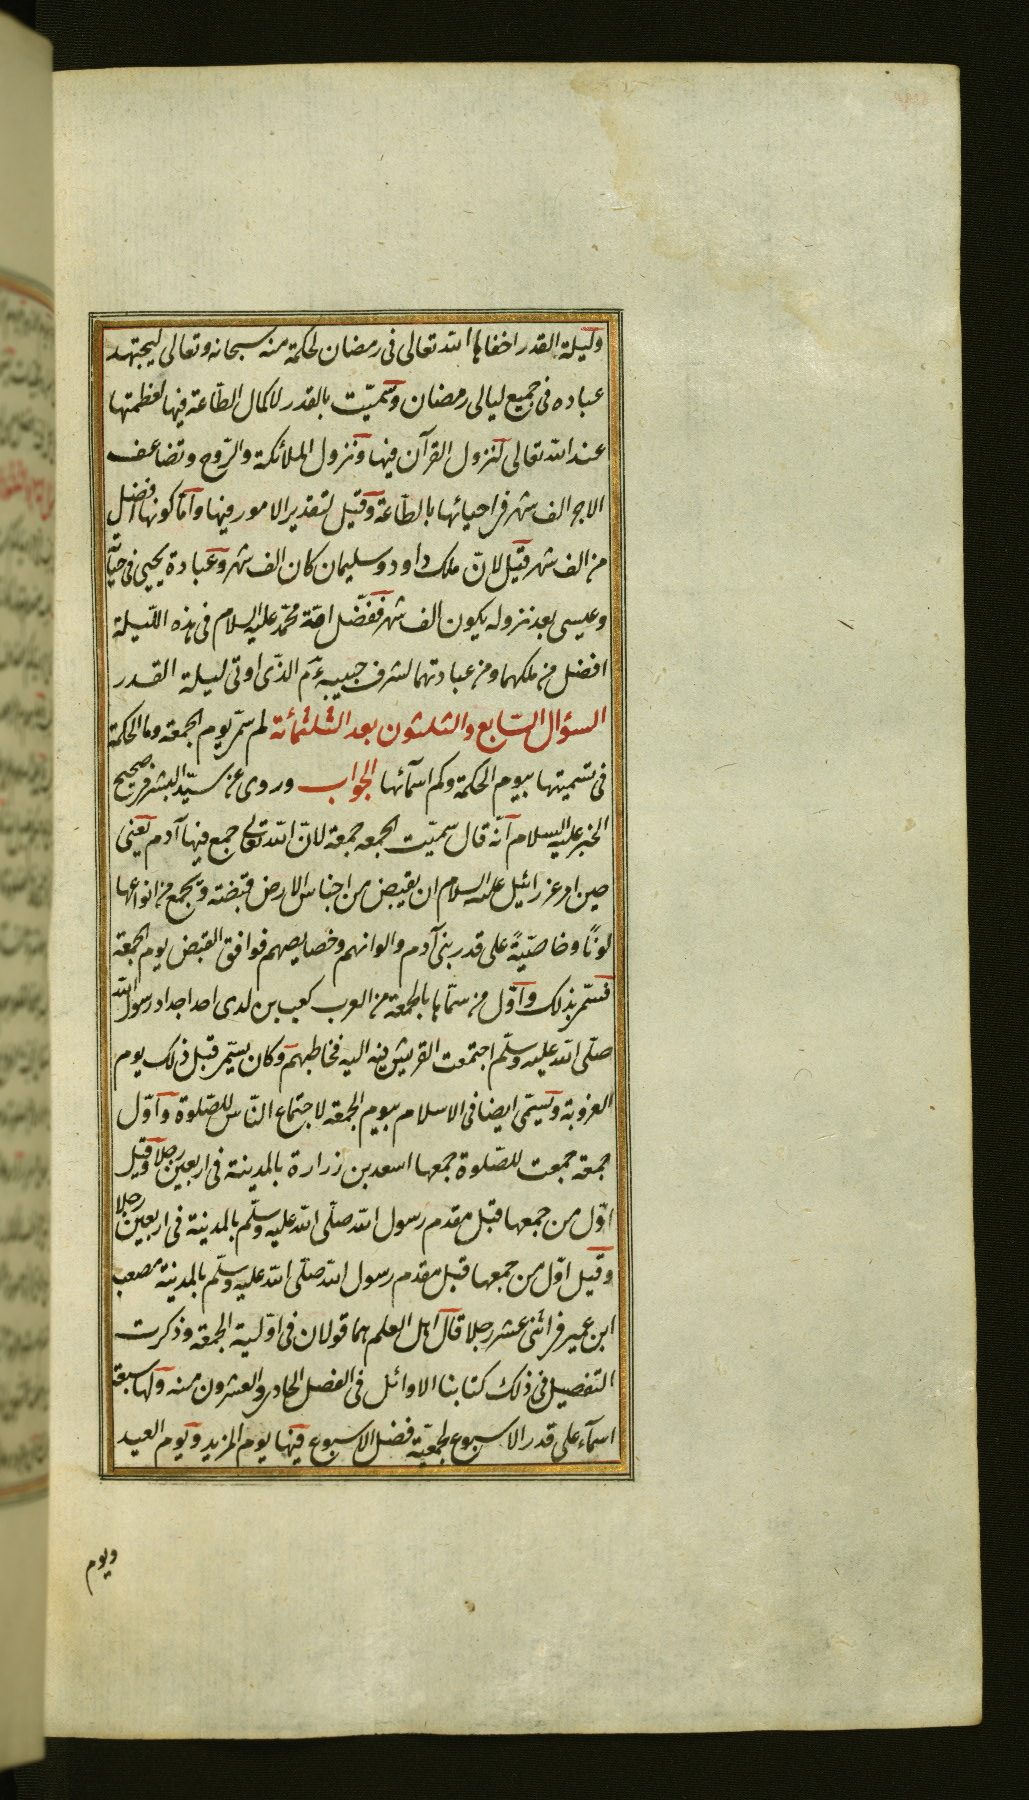 وليلة القدر اخفاها الله تعالى فى رمضان لحكمة منه سبحانه وتعالى ليجتهد
عباده فى جميع ليالى رمضان وسميّت بالقدر لاكمال الطّاعة فيها لعظمتها
عند الله تعالى لنزول القرآن فيها ونزول الملائكة والرّوح وتضاعف
الاجر الف شهر فى احيائها بالطّاعة وقيل لتقدير الامور فيها وامّا كونها افضل
من الف شهر قيل لانّ ملك داود وسليمان كان الف شهر وعبادة يحيى فى حياته
وعيسى بعد نزوله يكون الف شهر ففضّل امّة محمّد عليه السلام فى هذه اللّيلة
افضل من ملكهما ومن عبادتهما لشرف حبيبه عم الذّى اوتى ليلة القدر
السؤال السّابع والثلثون بعد الثلثمائة لم سمّى يوم الجمعة وما الحكمة
فى تسميتها بيوم الحكمة وكم اسمآئها الجواب وروى عن سيّد البشر فى صحيح
الخبر عليه السلام انّه قال سميّت الجمعه جمعة لانّ الله تعالى جمع فيها آدم يعنى
حين امر عزرائيل عليه السلام ان يقبض من اجناس الارض قبضته ويجمع من انواعها
لونًا وخاصيّةً على قدر بنى آدم والوانهم وخصايصهم فوافق القبض يوم الجمعة
فسمّى بذلك واوّل من سمّاها بالجمعة من العرب كعب بن لدى احد اجداد رسول الله
صلّى الله عليه وسلّم اجتمعت القريش فيه اليه فخاطبهم وكان يسمّى قبل ذلك يوم
العروبة ويسمّى ايضا فى الاسلام بيوم الجمعة لاجتماع النّاس للصّلوة واوّل
جمعة جمعت للصّلوة جمعها اسعد بن زرارة بالمدينة فى اربعين رجلا وقيل
اوّل من جمعها قبل مقدم رسول الله صلّى الله عليه وسلّم بالمدينة فى اربعين رجلا
وقيل اوّل من جمعها قبل مقدم رسول الله صلّى الله عليه وسلّم بالمدينة مصعب
ابن عمير فى اثنى عشر رجلا قال اهل العلم هما قولان فى اوّلية الجمعة وذكرت
التفصيل فى ذلك كتابنا الاوائل فى الفصل الحادى والعشرون منه ولها سبعة
اسمآء على قدر الاسبوع لجمعيّة فضل الاسبوع فيها يوم المزيد ويوم العيد
ويوم